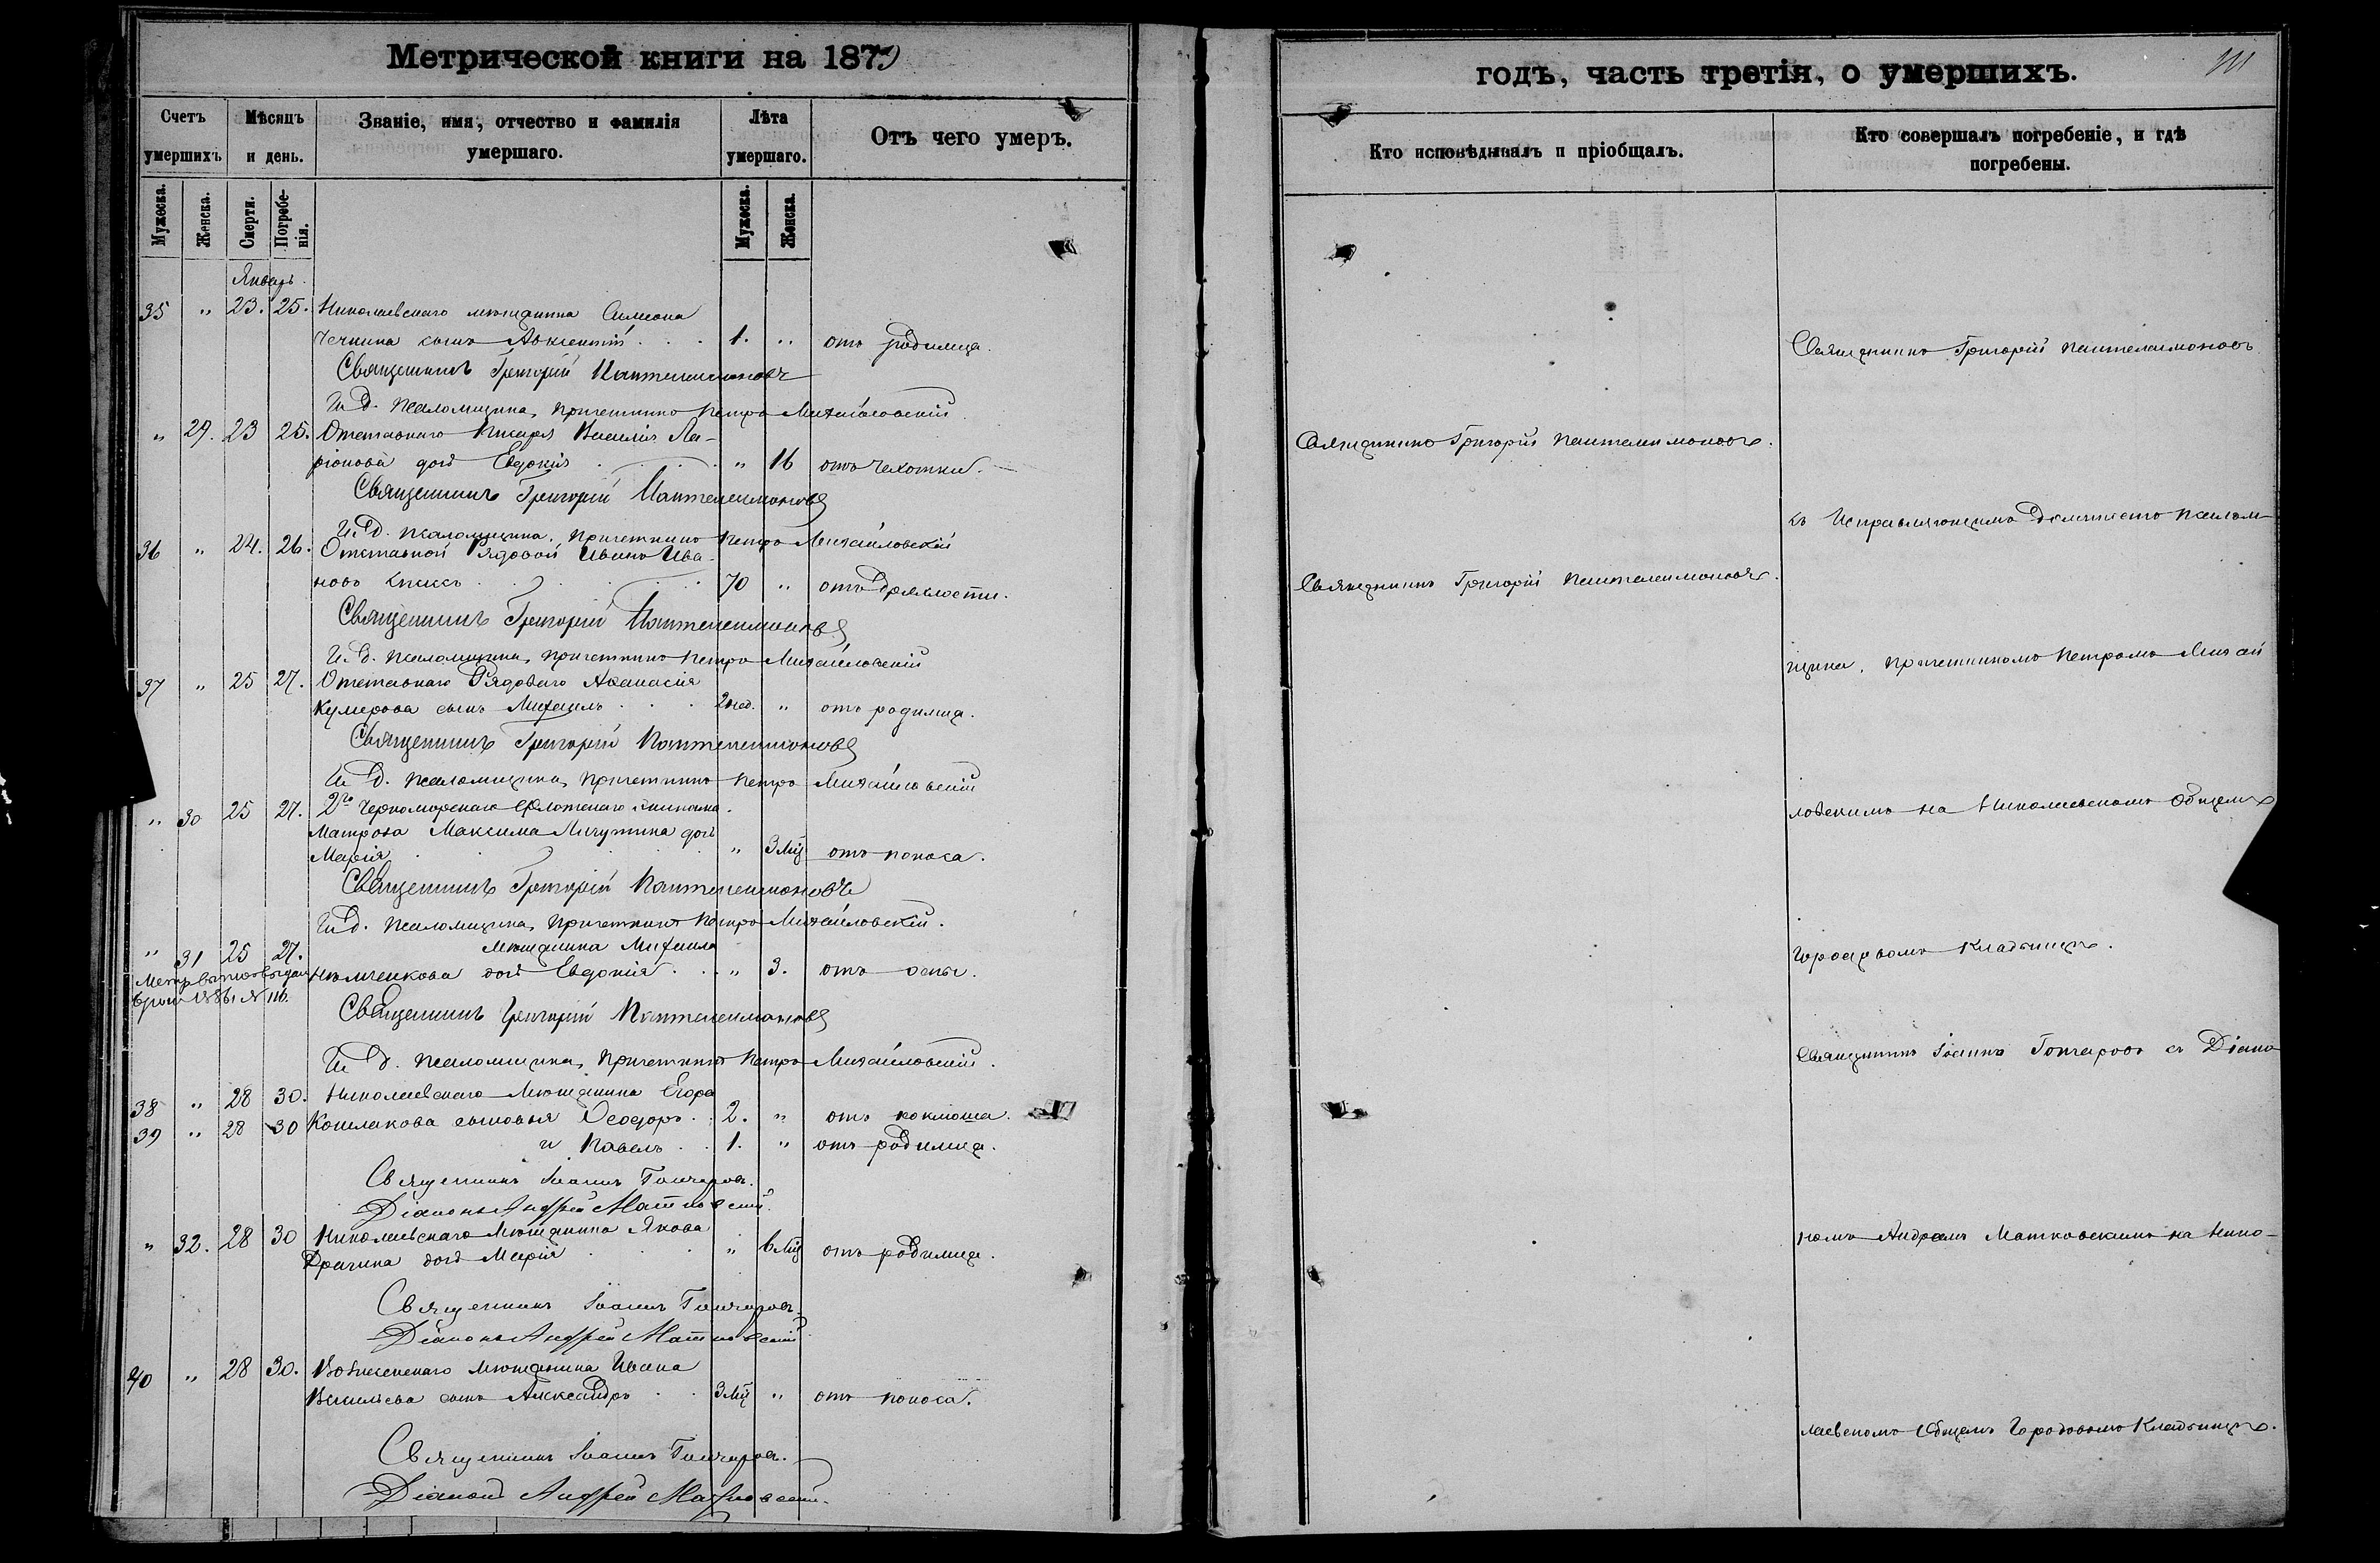 Метрической книги на 1879
Счетъ умершихъ
Мѣсяцъ и день.
Званіе, имя, отчество и фамилія умершаго.
Лѣта умершаго.
Отъ чего умеръ.
Мужеска.
Женска.
Смерти.
Погребенія.
Мужеска.
Женска.
Январь.
35 " 23. 25. Николаевскаго мѣщанина Симеона
сынъ Авксентій . . . 1. " отъ родимца.
Священникъ Григорій Пантелеимоновъ
И. д. псаломщика, причетникъ Петръ Михайловскій
" 29. 23 25. Отставнаго писаря Василія Ла-
ріонова дочь Евдокія . . . " 16 отъ чахотки.
Священникъ Григорій Пантелеимоновъ
И. д. псаломщика, причетникъ Петръ Михайловскій
36 " 24. 26. Отставной Рядовой Иванъ Ива-
новъ . . . 70 " отъ дряхлости.
Священникъ Григорій Пантелеимоновъ
И. д. псаломщика, причетникъ Петръ Михайловскій
37 " 25 27. Отставнаго Рядоваго Аѳанасія
Кумерова сынъ Михаилъ . . . 2 нед. " отъ родимца.
Священникъ Григорій Пантелеимоновъ
И. д. псаломщика, причетникъ Петръ Михайловскій
" 30 25 27. 2го Черноморскаго Флотскаго экипажа
Матроса Максима Личутина дочь
Марія . . . " 3 мц отъ поноса.
Священникъ Григорій Пантелеимоновъ
И. д. псаломщика, причетникъ Петръ Михайловскій.
" 31 25 27. мѣщанина Михаила
дочь Евдокія . . " 3. отъ оспы.
Священникъ Григорій Пантелеимоновъ
И. д. псаломщика, причетникъ Петръ Михайловскій.
38 " 28 30. Николаевскаго Мѣщанина Егора
39 " 28 30 Кошлакова сыновья Ѳеодоръ . . 2. " отъ коклюша.
и Павелъ . . 1. " отъ родимца.
Священникъ Іоаннъ Гончаровъ.
Діаконъ Андрей Матковскій.
" 32. 28 30 Николаевскаго Мѣщанина Якова
Драгина дочь Марія . . . " 6 мц отъ родимца.
Священникъ Іоаннъ Гончаровъ.
Діаконъ Андрей Матковскій
40 " 28 30. Вознесенскаго мѣщанина Ивана
Васильева сынъ Александръ . . 3 мц " отъ поноса.
Священникъ Іоаннъ Гончаровъ.
Діаконъ Андрей Матковскій.
годъ, часть третія, о умершихъ.
Кто исповѣдывалъ и пріобщалъ.
Кто совершалъ погребеніе, и гдѣ погребены.
Священникъ Григорій Пантелеимоновъ
Священникъ Григорій Пантелеимоновъ.
съ Исправляющимъ должность псалом-
Священникъ Григорій Пантелеимоновъ.
щика, причетникомъ Петромъ Михай
ловскимъ на Николаевскомъ общемъ
Городскомъ Кладбищѣ.
Священникъ Іоаннъ Гончаровъ съ Діако
номъ Андреемъ Матковскимъ на Нико-
лаевскомъ Общемъ Городовомъ Кладбищѣ.